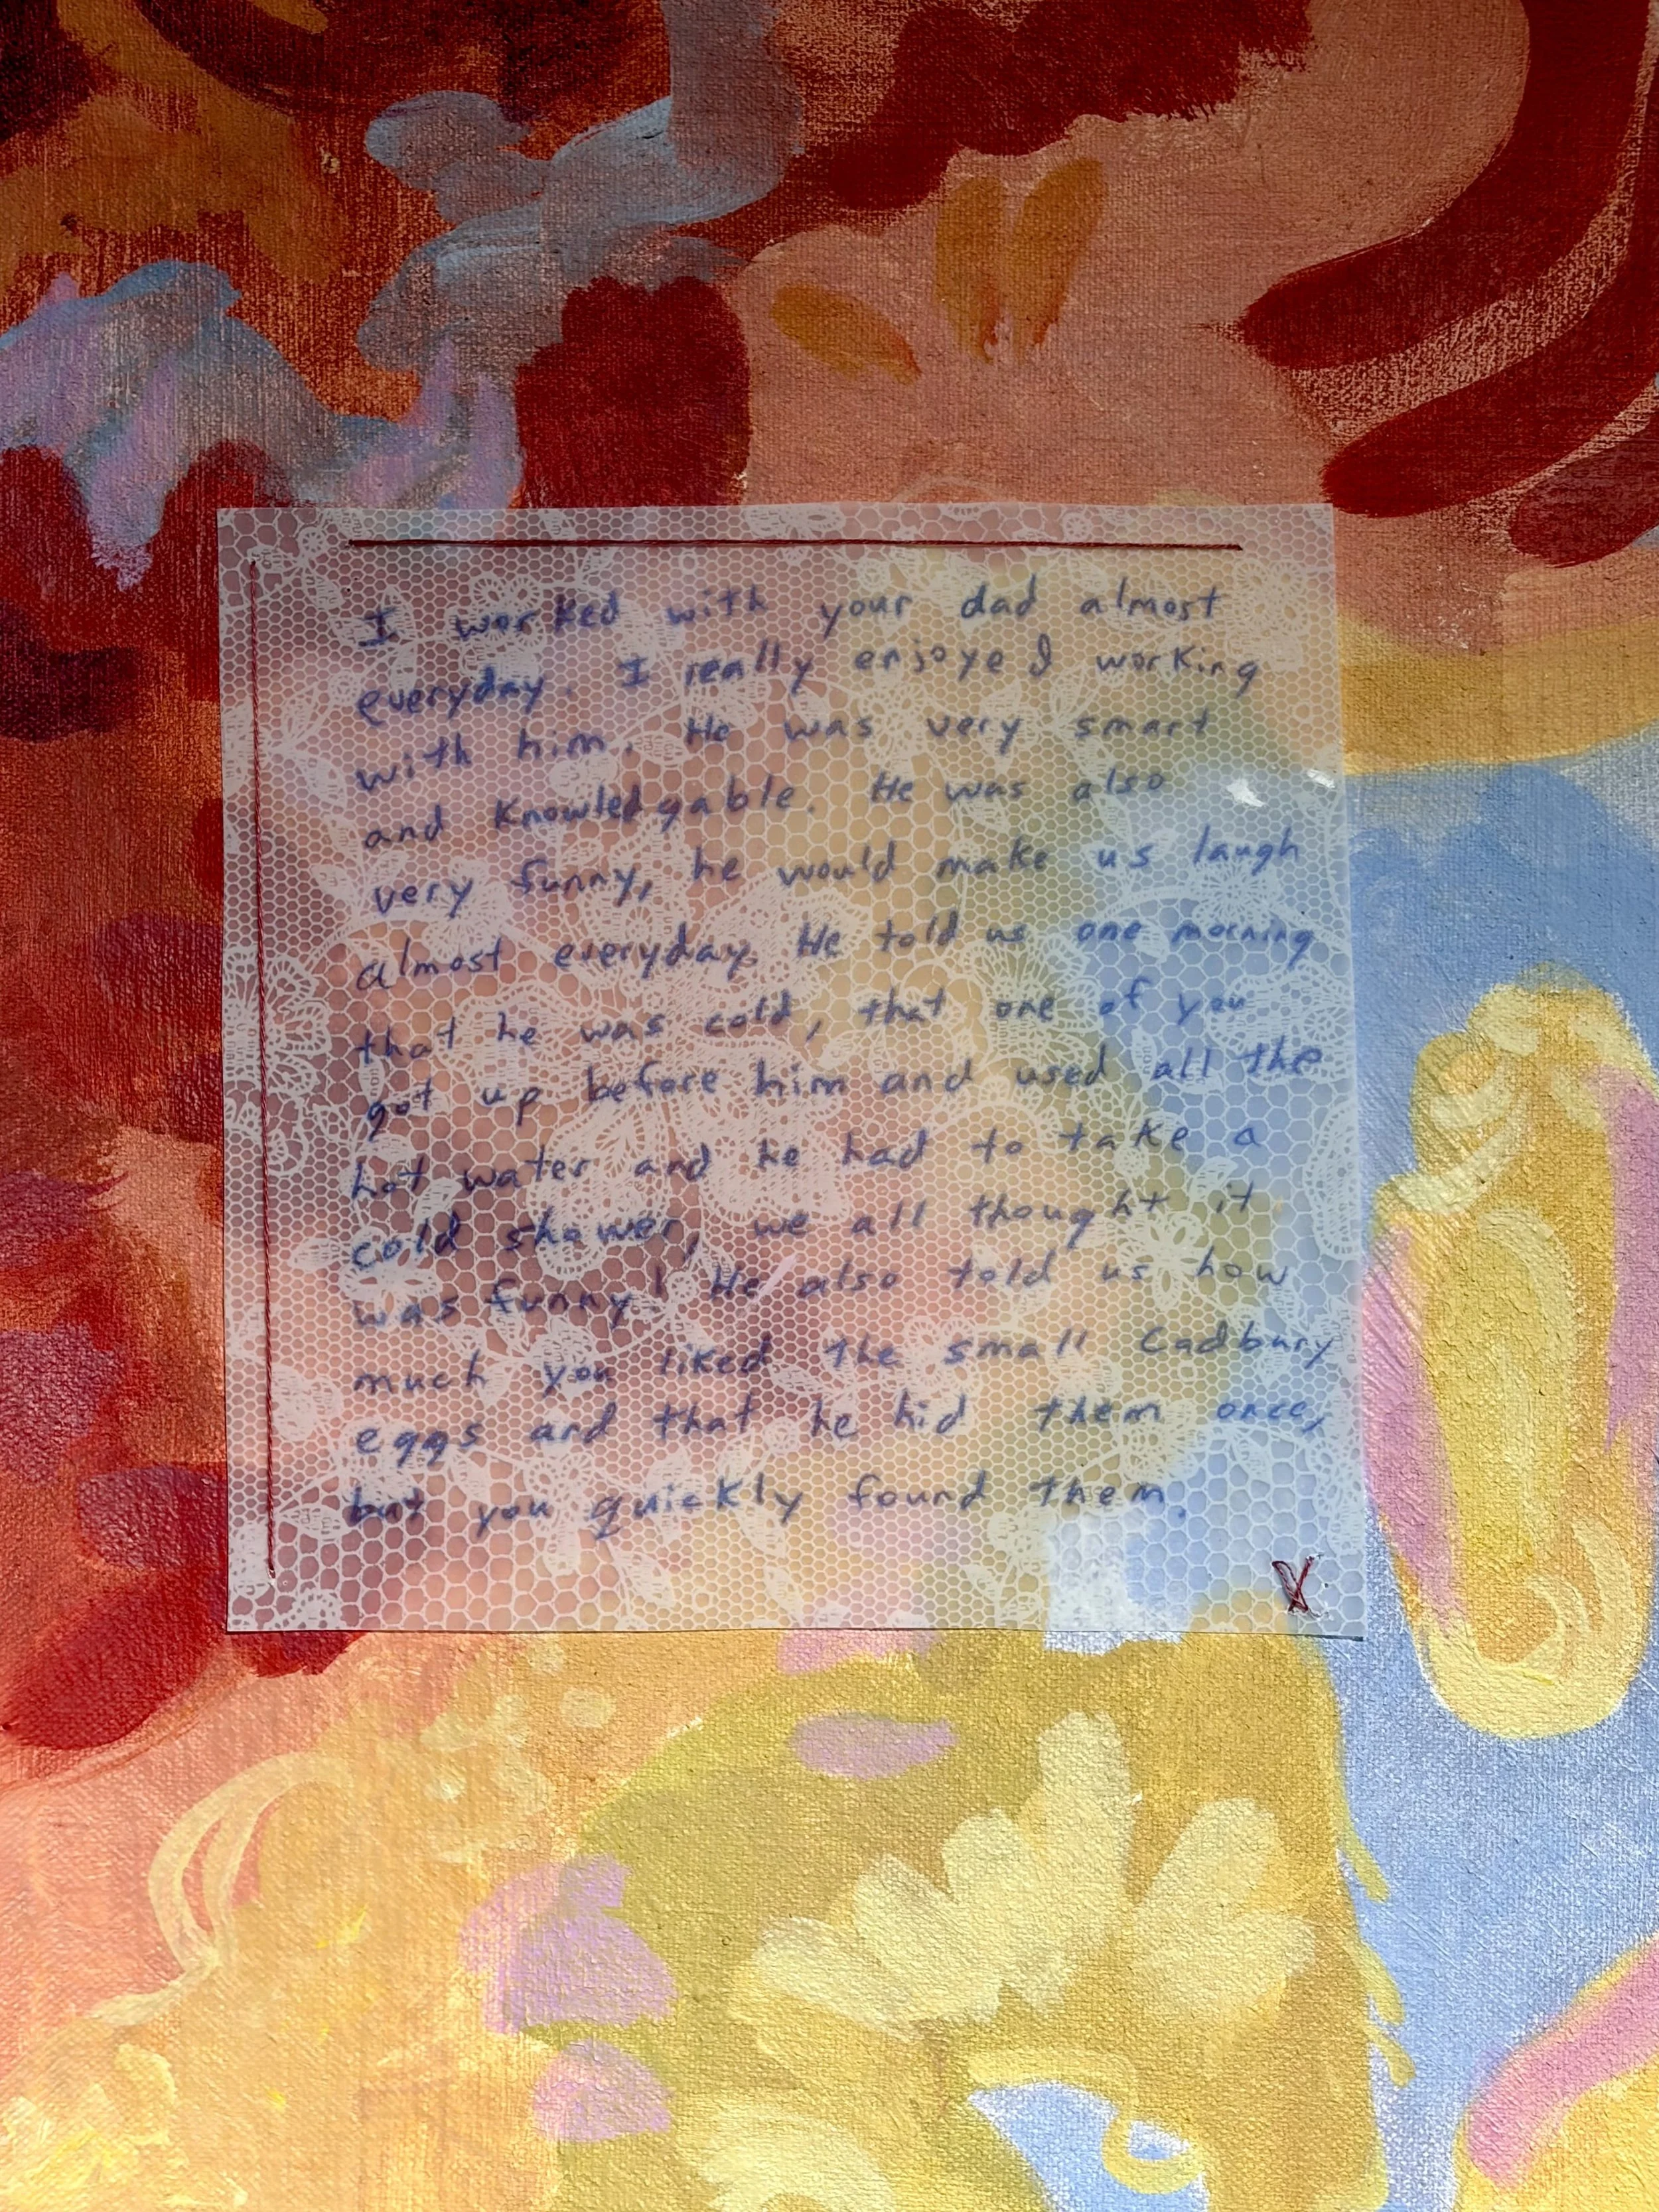 I worked with your dad almost
everyday. I really enjoyed working
with him. He was very smart
and Knowledgable. He was also
very funny, he would make us laugh
almost everyday. He told us one morning
that he was cold, that one of you
got up before him and used all the
hot water and he had to take a
cold shower, we all thought it
was funny! He also told us how
much you liked the small Cadbury
eggs and that he hid them once,
but you quickly found them.